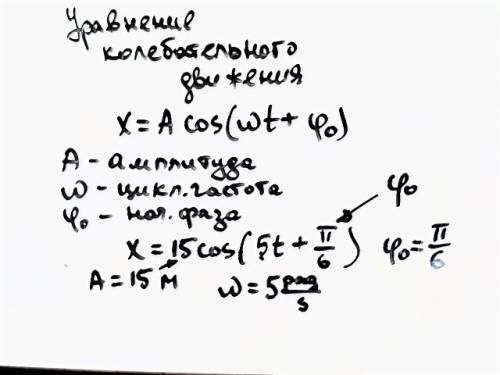 Уравнение
колебательного
движения
x = A cos(ωt + φ₀)
A - амплитуда
ω - цикл. частота
φ₀ - нач. фаза
φ₀
x = 15 cos(5t + π/6) φ₀ = π/6
A = 15 м ω = 5 рад/s